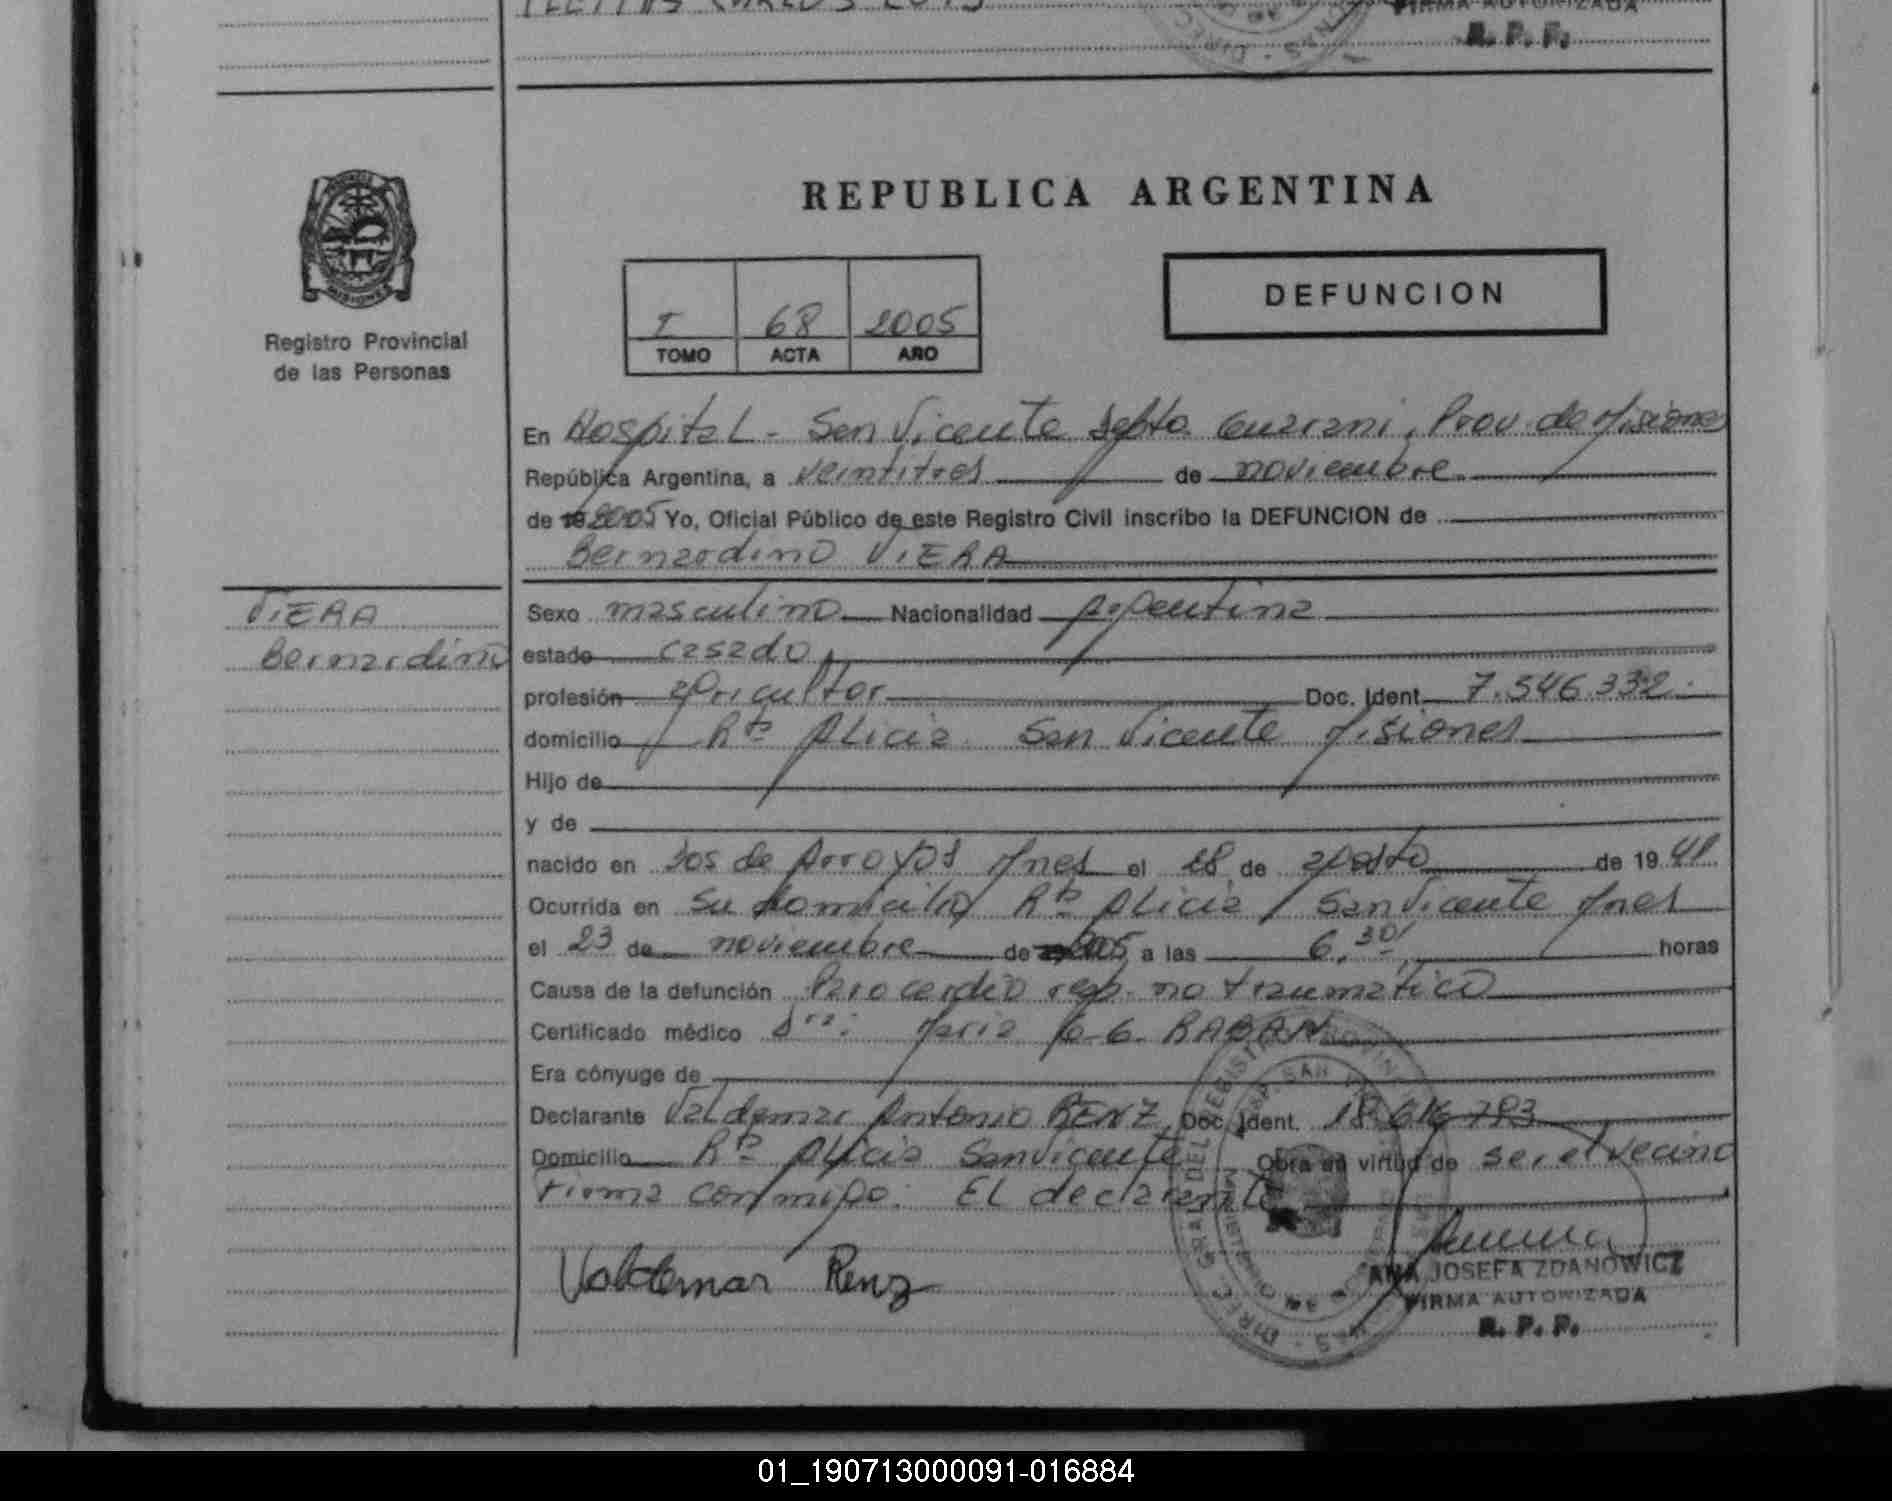 FIRMA AUTORIZADA
R. P. P.
REPUBLICA ARGENTINA
PROVINCIA
MISIONES
Registro Provincial
de las Personas
I 68 2005
TOMO ACTA AÑO
DEFUNCION
En Hospital - San Vicente Dpto. Guarani, Prov de Misiones
República Argentina, a veintitres de noviembre
de 19 2005 Yo, Oficial Público de este Registro Civil inscribo la DEFUNCION de
Bernardino VIERA
VIERA
Bernardino
Sexo masculino Nacionalidad argentina
estado casado
profesión agricultor Doc. Ident. 7.546.332.
domicilio Rto Alicia San Vicente Misiones
Hijo de
y de
nacido en Dos de Arroyos Mnes el 28 de agosto de 19 41
Ocurrida en su domicilio Rto Alicia San Vicente Mnes
el 23 de noviembre de 2005 a las 6,30 horas
Causa de la defunción Paro cardio resp. no traumatico
Certificado médico Dra: Maria G. RABAN
Era cónyuge de
Declarante Valdemar Antonio RENZ Doc. Ident. 18.616.793
Domicilio Rto Alicia San Vicente Obra en virtud de ser el vecino
Firma conmigo: El declarante
Valdemar Renz
ANA JOSEFA ZDANOWICZ
FIRMA AUTORIZADA
R. P. P.
01_190713000091-016884